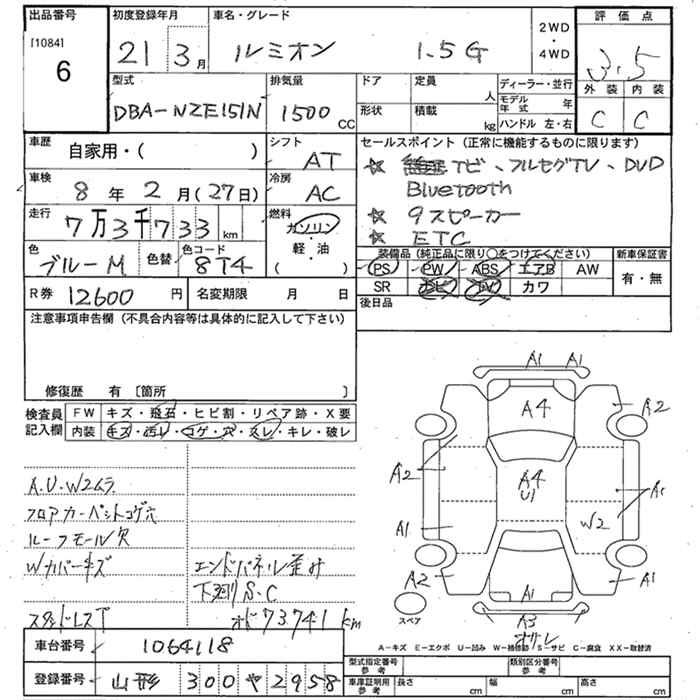 出品番号
[1084]
6
初度登録年月
21 3月
車名・グレード
ルミオン 1.5G
2WD
・
4WD
評価点
3.5
外装 内装
C C
型式
DBA-NZE151N
排気量
1500 CC
ドア
形状
定員
人
積載
kg
ディーラー・並行
モデル年式 年
ハンドル 左・右
車歴
自家用・( )
シフト
AT
車検
8年2月(27日)
冷房
AC
走行
7万3千733km
燃料
ガソリン
・
軽・油
( )
色
ブルーM
色替
色コード
8T4
セールスポイント (正常に機能するものに限ります)
☆ ナビ、フルセグTV、DVD
Bluetooth
☆ 9スピーカー
☆ ETC
装備品 (純正品に限り○をつけてください)
新車保証書
PS PW ABS エアB AW
SR ナビ TV カワ
有・無
後日品
R券 12600円
名変期限 月 日
注意事項申告欄 (不具合内容等は具体的に記入して下さい)
修復歴 有 [箇所 ]
検査員記入欄
FW キズ・飛石・ヒビ割・リペア跡・X要
内装 キズ・汚レ・コゲ・穴・スレ・キレ・破レ
A.U.W2ムラ
フロアカーペットコゲ穴
ルーフモール欠
Wカバーキズ
スタッドレスT
エンドパネル歪み
下廻りS.C
オド73741km
A1 A1
A4
A2
A2
A4
U1
A1
W2
A1
A2
A1
A1
A3
オサレ
スペア
A-キズ E-エクボ U-凹み W-補修跡 S-サビ C-腐食 XX-取替済
車台番号 1064118
登録番号 山形 300 や 2958
型式指定番号
参考
類別区分番号
参考
車庫証明用
参考
長さ cm
幅 cm
高さ cm